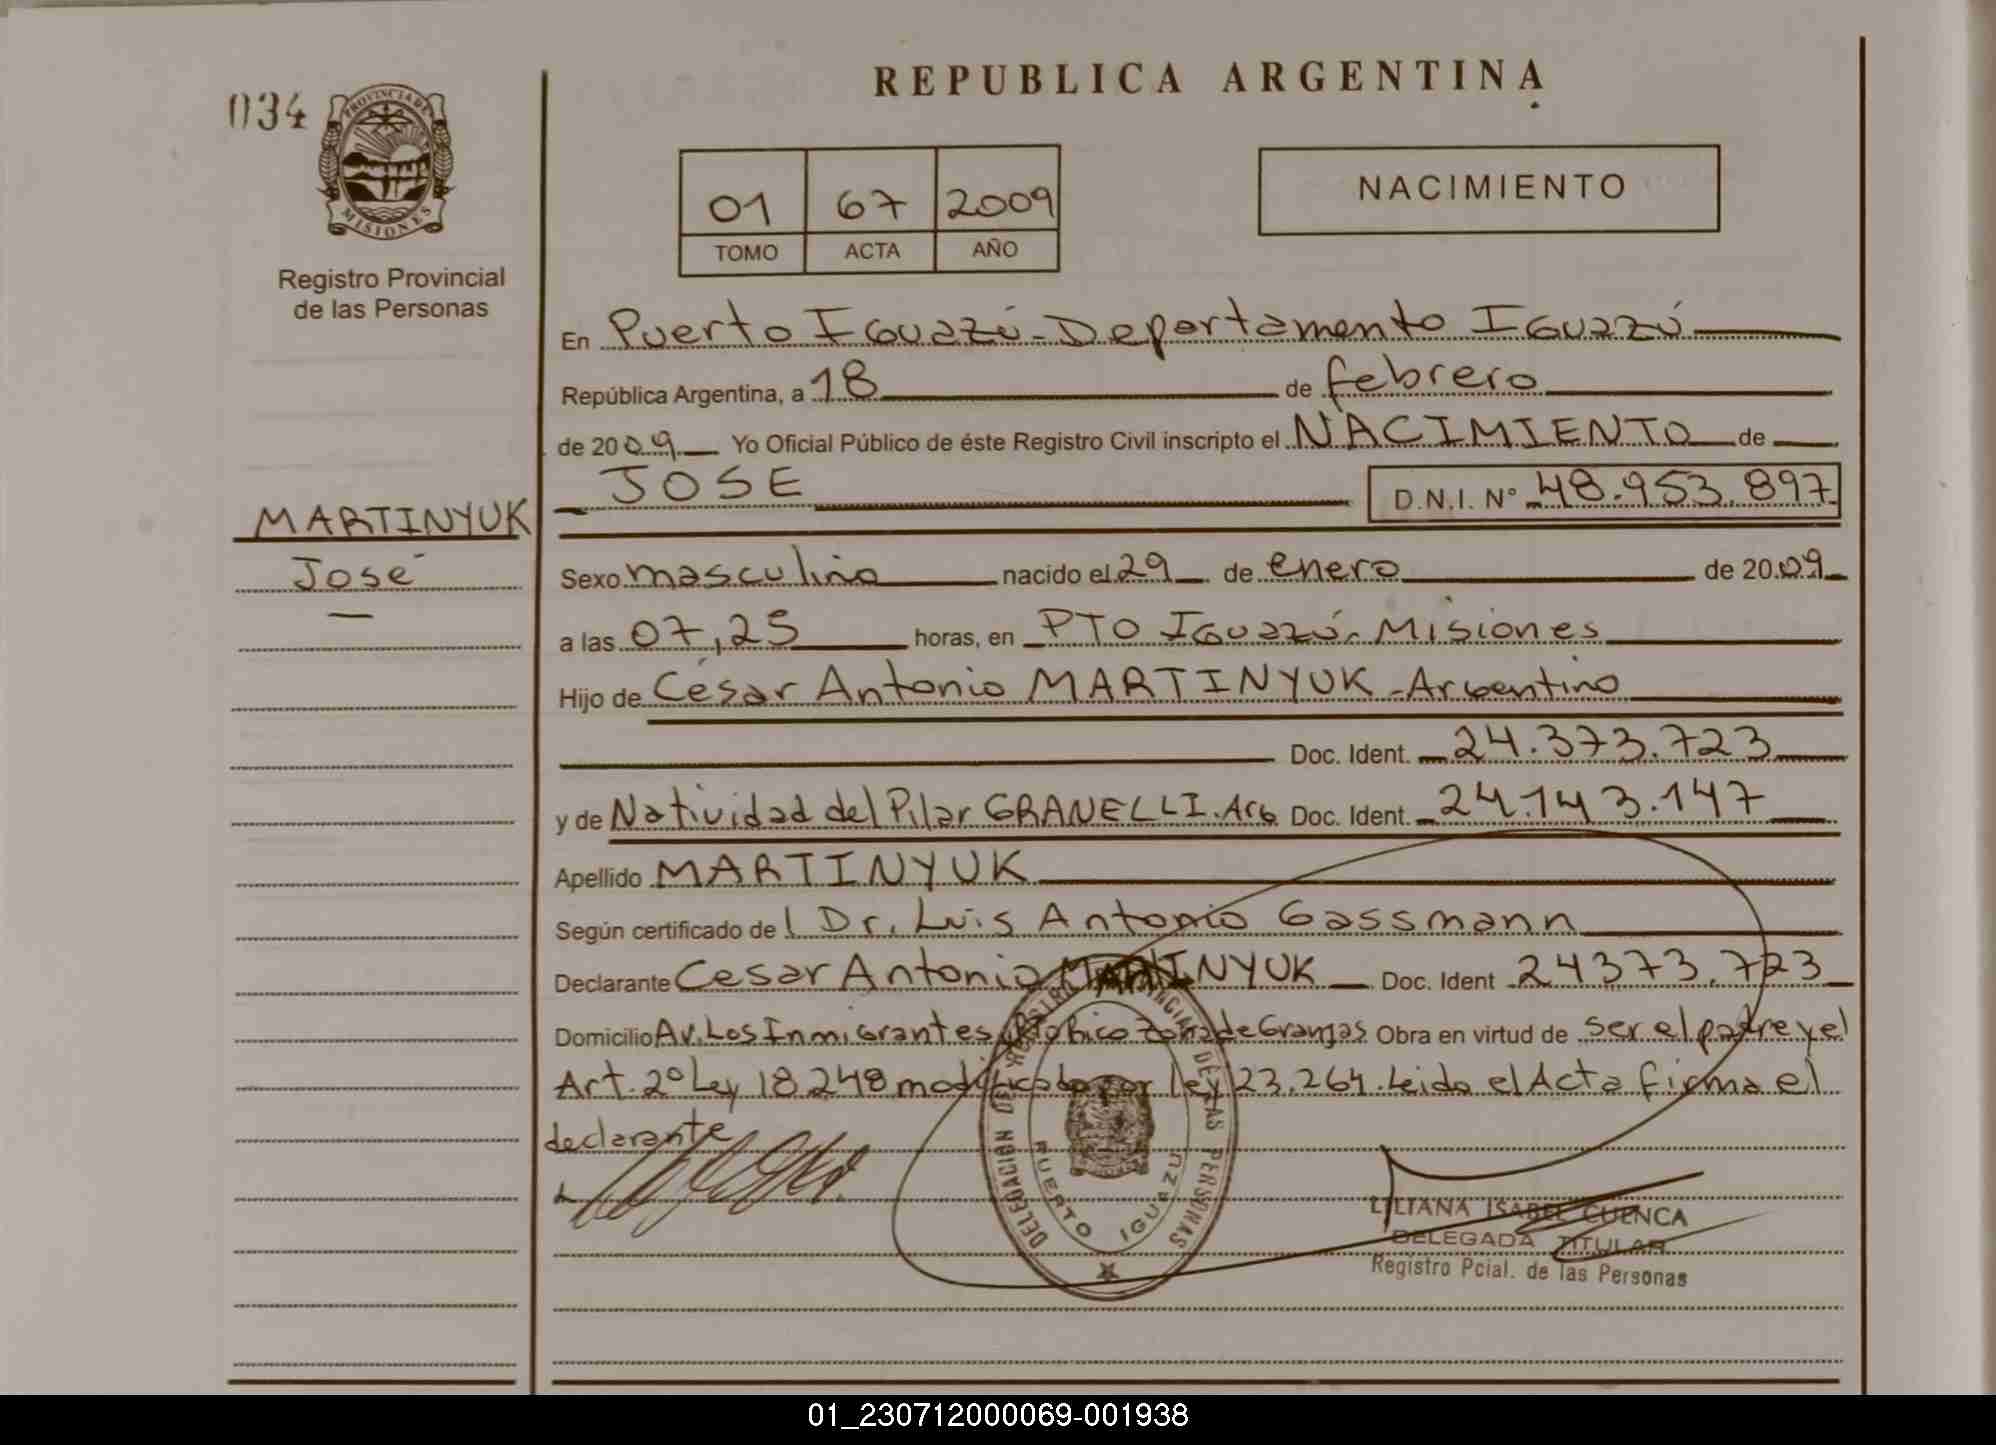 REPUBLICA ARGENTINA
034
PROVINCIA DE
MISIONES
Registro Provincial
de las Personas
01 67 2009
TOMO ACTA AÑO
NACIMIENTO
En Puerto Iguazú - Departamento Iguazú
República Argentina, a 18 de febrero
de 2009 Yo Oficial Público de éste Registro Civil inscripto el NACIMIENTO de
JOSE D.N.I. N° 48.953.897
MARTINYUK
José
Sexo masculino nacido el 29 de enero de 2009
a las 07,25 horas, en PTO Iguazú. Misiones
Hijo de César Antonio MARTINYUK - Argentino
Doc. Ident. 24.373.723
y de Natividad del Pilar GRANELLI. Arg Doc. Ident. 24.143.147
Apellido MARTINYUK
Según certificado del Dr. Luis Antonio Gassmann
Declarante Cesar Antonio MARTINYUK Doc. Ident 24373.723
Domicilio Av. Los Inmigrantes zona de Granjas Obra en virtud de ser el padre y el
Art. 2° Ley 18.248 modificado por ley 23.264. Leida el Acta firma el
declarante
DELEGACION DE REGISTRO PROVINCIAL DE LAS PERSONAS
PUERTO IGUAZU
LILIANA ISABEL CUENCA
DELEGADA TITULAR
Registro Pcial. de las Personas
01_230712000069-001938